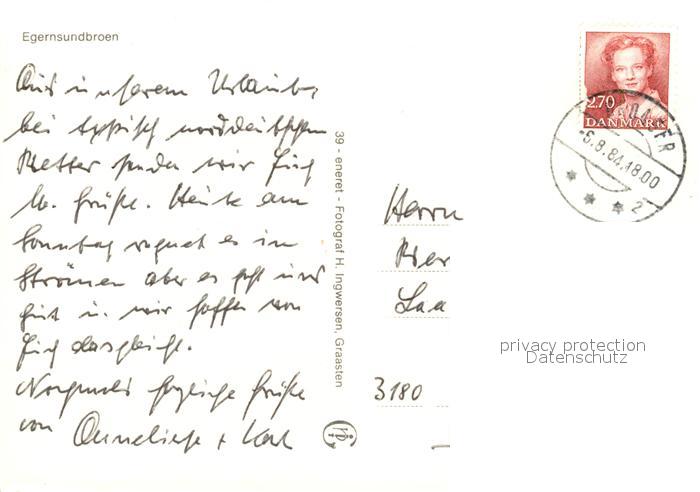 Egernsundbroen
Aus unserem Urlaub,
bei typisch norddeutschem
Wetter senden wir Euch
lb. Grüße. Heute am
Sonntag regnet es in
Strömen aber es geht uns
gut u. wir hoffen von
Euch dasgleiche.
Nochmals herzliche Grüße
von Anneliese + Karl
39 - eneret - Fotograf H. Ingwersen, Graasten
2.70
DANMARK
-6.8.84.18.00
2
Herrn
3180
privacy protection
Datenschutz